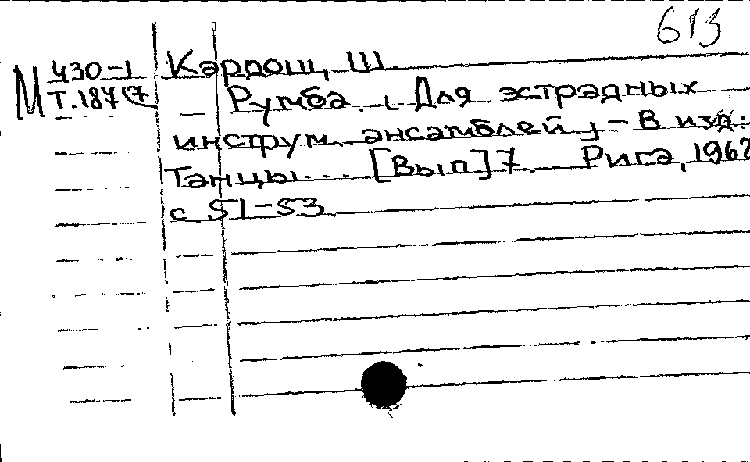 613
М 430-1 Карпош, Ш.
Т.187(7 – Румба. (Для эстрадных
инструм. ансамблей) – В изд.:
Танцы... [Вып] 7. Рига, 1962
с 51-53